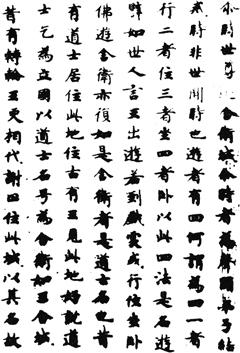 尒時世尊舍衛城
時非世間時也遊者有四何謂為四一者
行二者住三者坐四者卧以此四法是名遊
如世人言王出遊若到戲處成行住坐卧
佛遊舍衛亦復如是舍衛者是道士名也昔
有道士居住此地往古有王見此地好就道
士乞為立國以道士名号為舍衛如王舍城
昔有轉輪王更相代謝四位此城以其名故